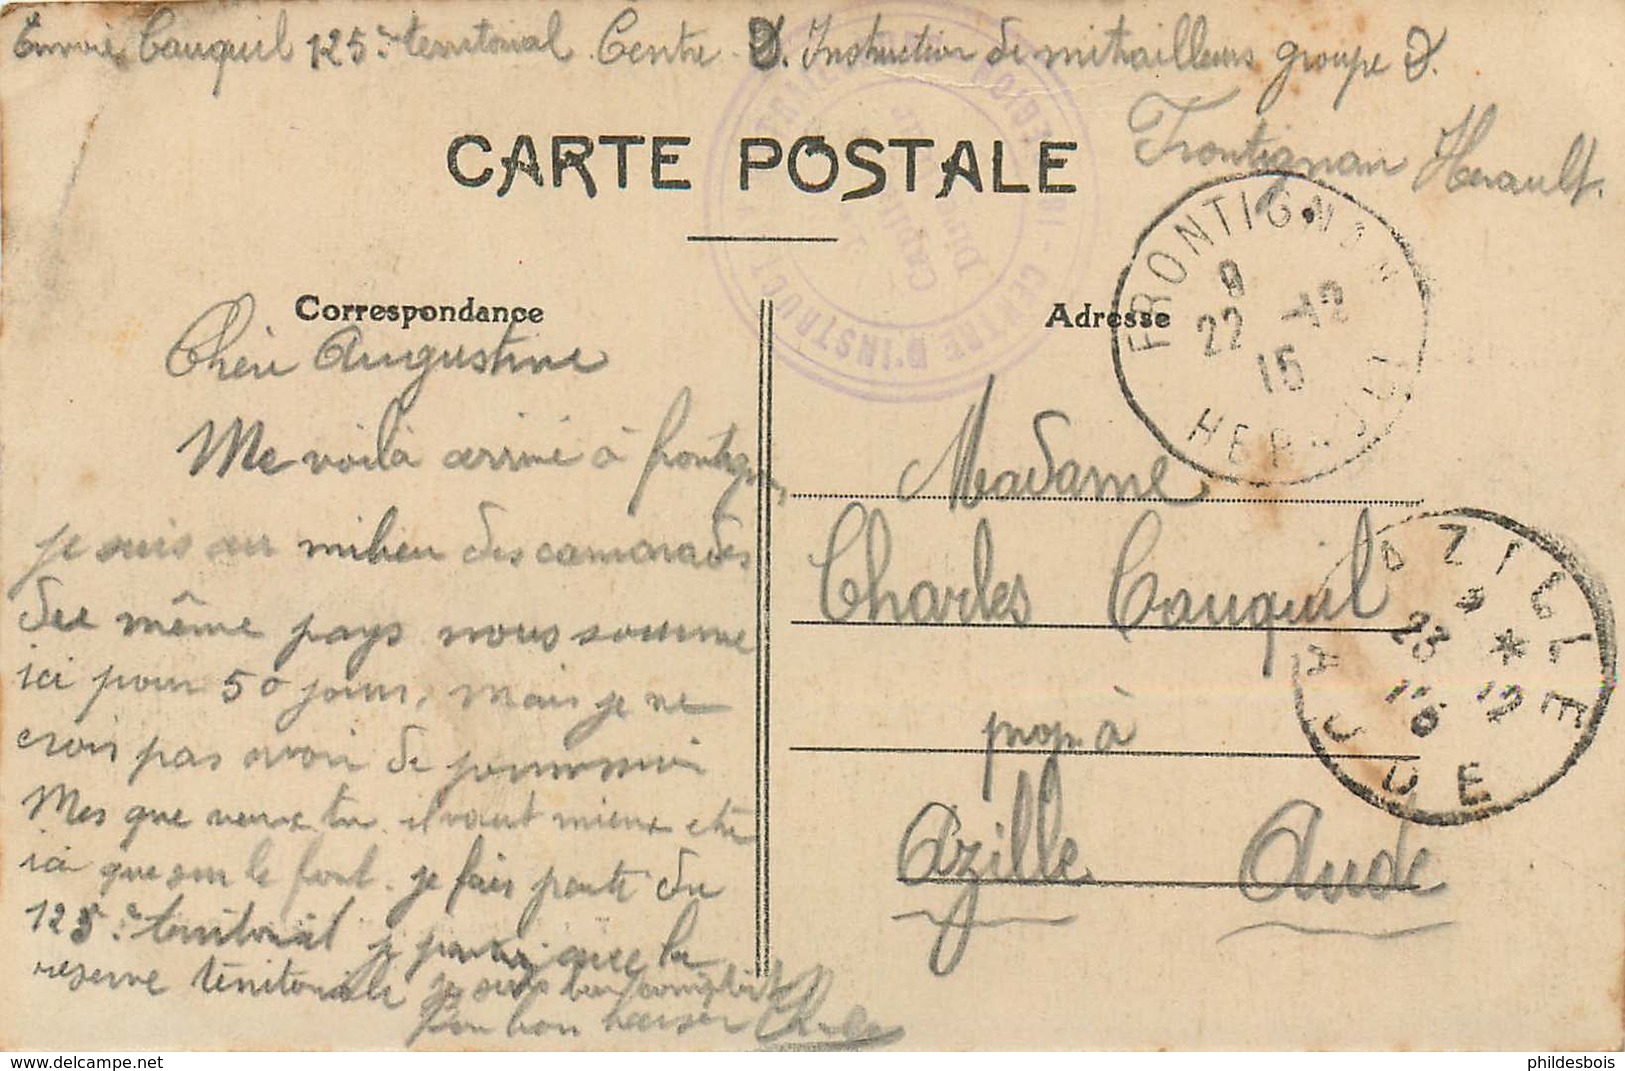 Envoie Cauquil 125e territorial Centre D. Instruction de mitrailleurs groupe D.
Frontignan Herault.
CARTE POSTALE
Correspondance
Adresse
FRONTIGNAN
9
22 -12
15
HERAULT
Chère Augustine
Me voila arrivé à frontignan
je suis au milieu des camarades
du même pays nous somme
ici pour 50 jours, mais je ne
crois pas avoir de permission
Mes que veux tu il vaut mieux etre
ici que sur le front. je fais partie du
125e territorial je avec la
reserve territoriale je suis
bon baiser Charles
Madame
Charles Cauquil
prop. à
Azille Aude
AZILLE
23 12
15
AUDE
CENTRE D'INSTRUCT
phildesbois